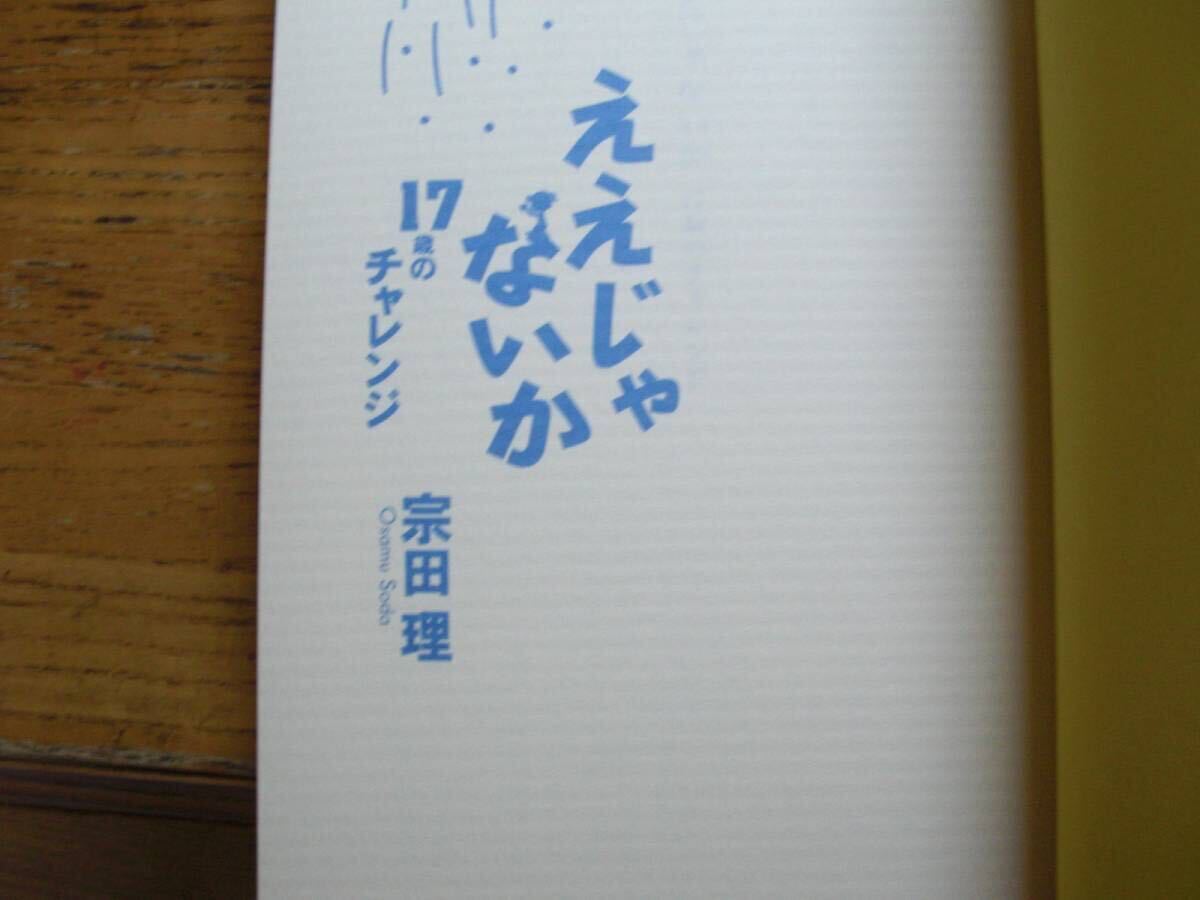 ええじゃ
ないか
17歳の
チャレンジ
宗田 理
Osamu Soda